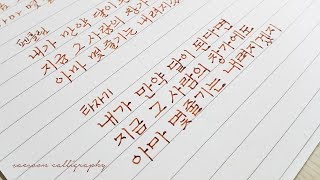 내가 만약 달이 된다면
지금 그 사람의 창가에도
아마 몇줄기는 내려지겠지
타자기
내가 만약 달이 된다면
지금 그 사람의 창가에도
아마 몇줄기는 내려지겠지
calligraphy